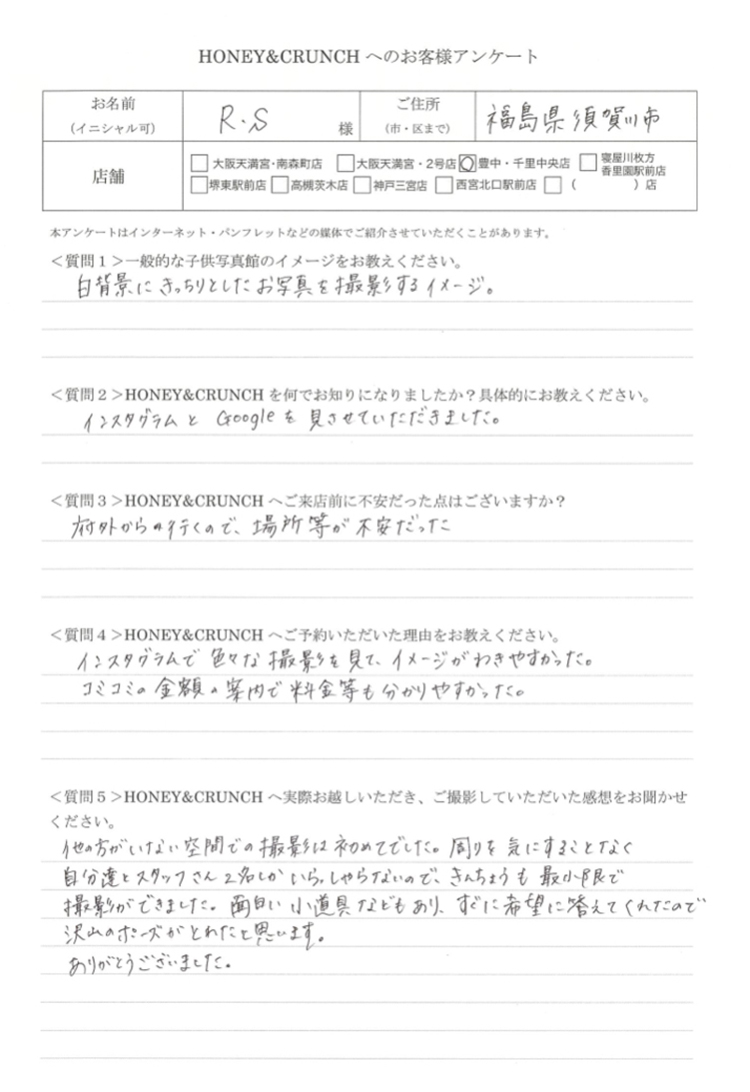 HONEY&CRUNCH へのお客様アンケート
お名前
(イニシャル可)
R.S
様
ご住所
(市・区まで)
福島県須賀川市
店舗
大阪天満宮・南森町店 大阪天満宮・2号店 豊中・千里中央店 寝屋川枚方香里園駅前店
堺東駅前店 高槻茨木店 神戸三宮店 西宮北口駅前店 ( )店
本アンケートはインターネット・パンフレットなどの媒体でご紹介させていただくことがあります。
<質問1>一般的な子供写真館のイメージをお教えください。
白背景にきっちりとしたお写真を撮影するイメージ。
<質問2>HONEY&CRUNCH を何でお知りになりましたか?具体的にお教えください。
インスタグラムと Googleを見させていただきました。
<質問3>HONEY&CRUNCH へご来店前に不安だった点はございますか?
府外からの行くので、場所等が不安だった
<質問4>HONEY&CRUNCH へご予約いただいた理由をお教えください。
インスタグラムで色々な撮影を見て、イメージがわきやすかった。
コミコミの金額の案内で料金等も分かりやすかった。
<質問5>HONEY&CRUNCH へ実際お越しいただき、ご撮影していただいた感想をお聞かせ
ください。
他の方がいない空間での撮影は初めてでした。周りを気にすることなく
自分達とスタッフさん2名しかいらっしゃらないので、きんちょうも最小限で
撮影ができました。面白い小道具などもあり、すぐに希望に答えてくれたので
沢山のポーズがとれたと思います。
ありがとうございました。